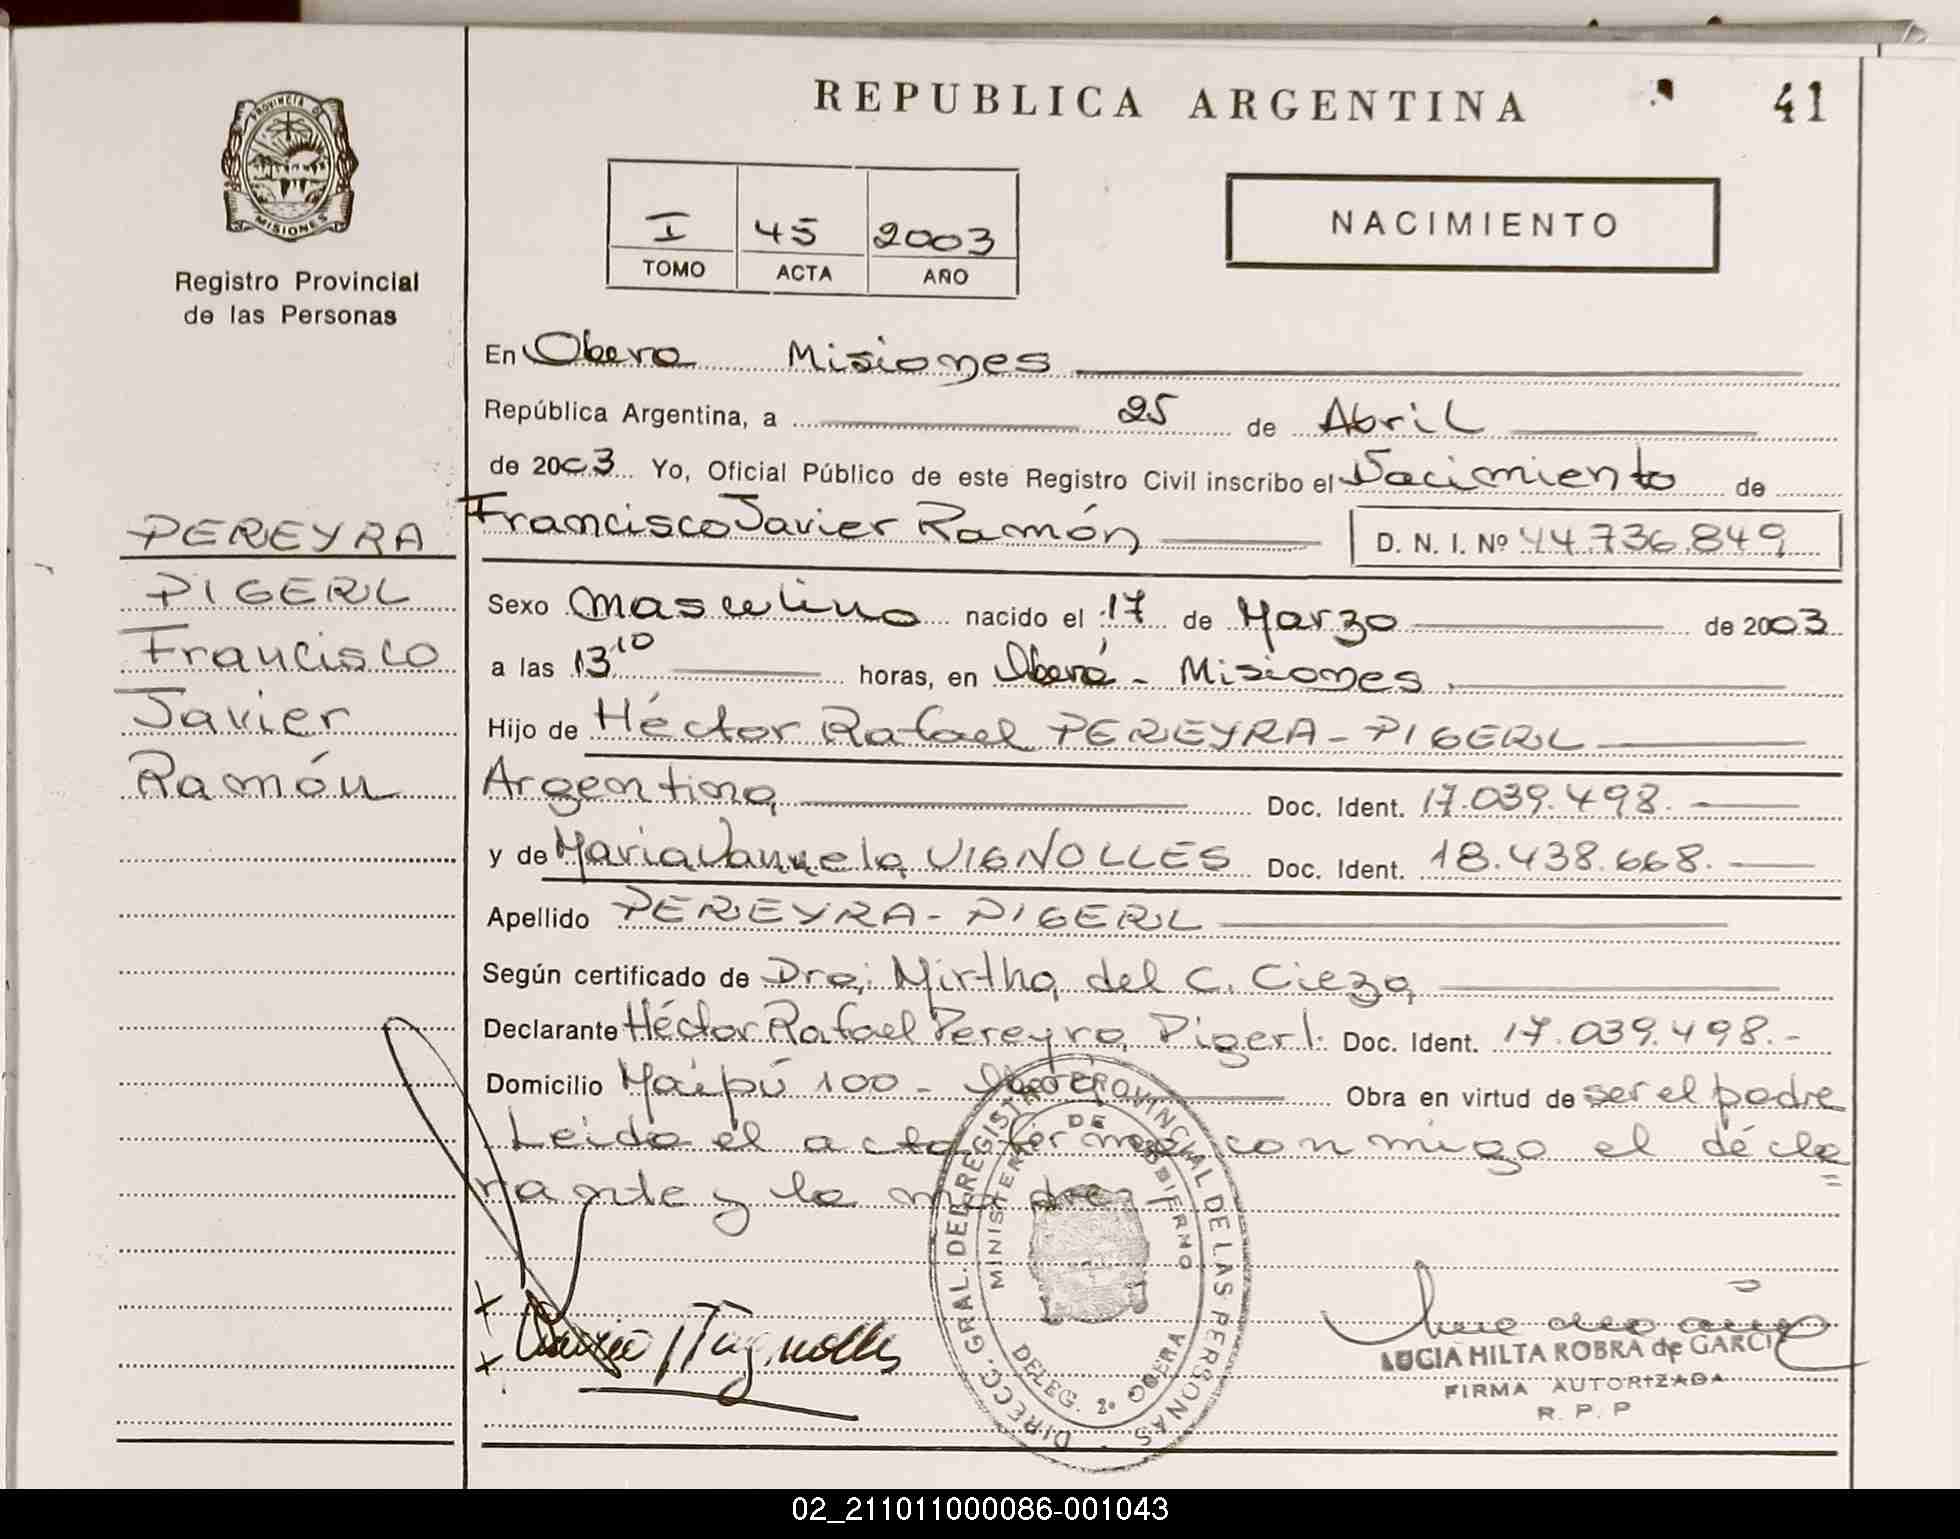 REPUBLICA ARGENTINA
41
PROVINCIA DE
MISIONES
Registro Provincial
de las Personas
I 45 2003
TOMO ACTA AÑO
NACIMIENTO
En Obera Misiones
República Argentina, a 25 de Abril
de 2003 Yo, Oficial Público de este Registro Civil inscribo el Nacimiento de
Francisco Javier Ramón D. N. I. Nº 44.736.849
PEREYRA
PIGERL
Francisco
Javier
Ramón
Sexo masculino nacido el 17 de Marzo de 2003
a las 13¹⁰ horas, en Oberá - Misiones
Hijo de Héctor Rafael PEREYRA - PIGERL
Argentina Doc. Ident. 17.039.498.
y de Maria Manuela VIGNOLLES Doc. Ident. 18.438.668.
Apellido PEREYRA - PIGERL
Según certificado de Dra; Mirtha del C. Cieza
Declarante Héctor Rafael Pereyra Pigerl. Doc. Ident. 17.039.498.-
Domicilio Maipú 100 - Oberá Obra en virtud de ser el padre
Leida el acta firma conmigo el decla=
rante y la madre
DIRECC. GRAL. DEL REGISTRO PROVINCIAL DE LAS PERSONAS
MINISTERIO DE GOBIERNO
DELEG. 2º OBERA
LUCIA HILTA ROBRA de GARCI
FIRMA AUTORIZADA
R. P. P
02_211011000086-001043